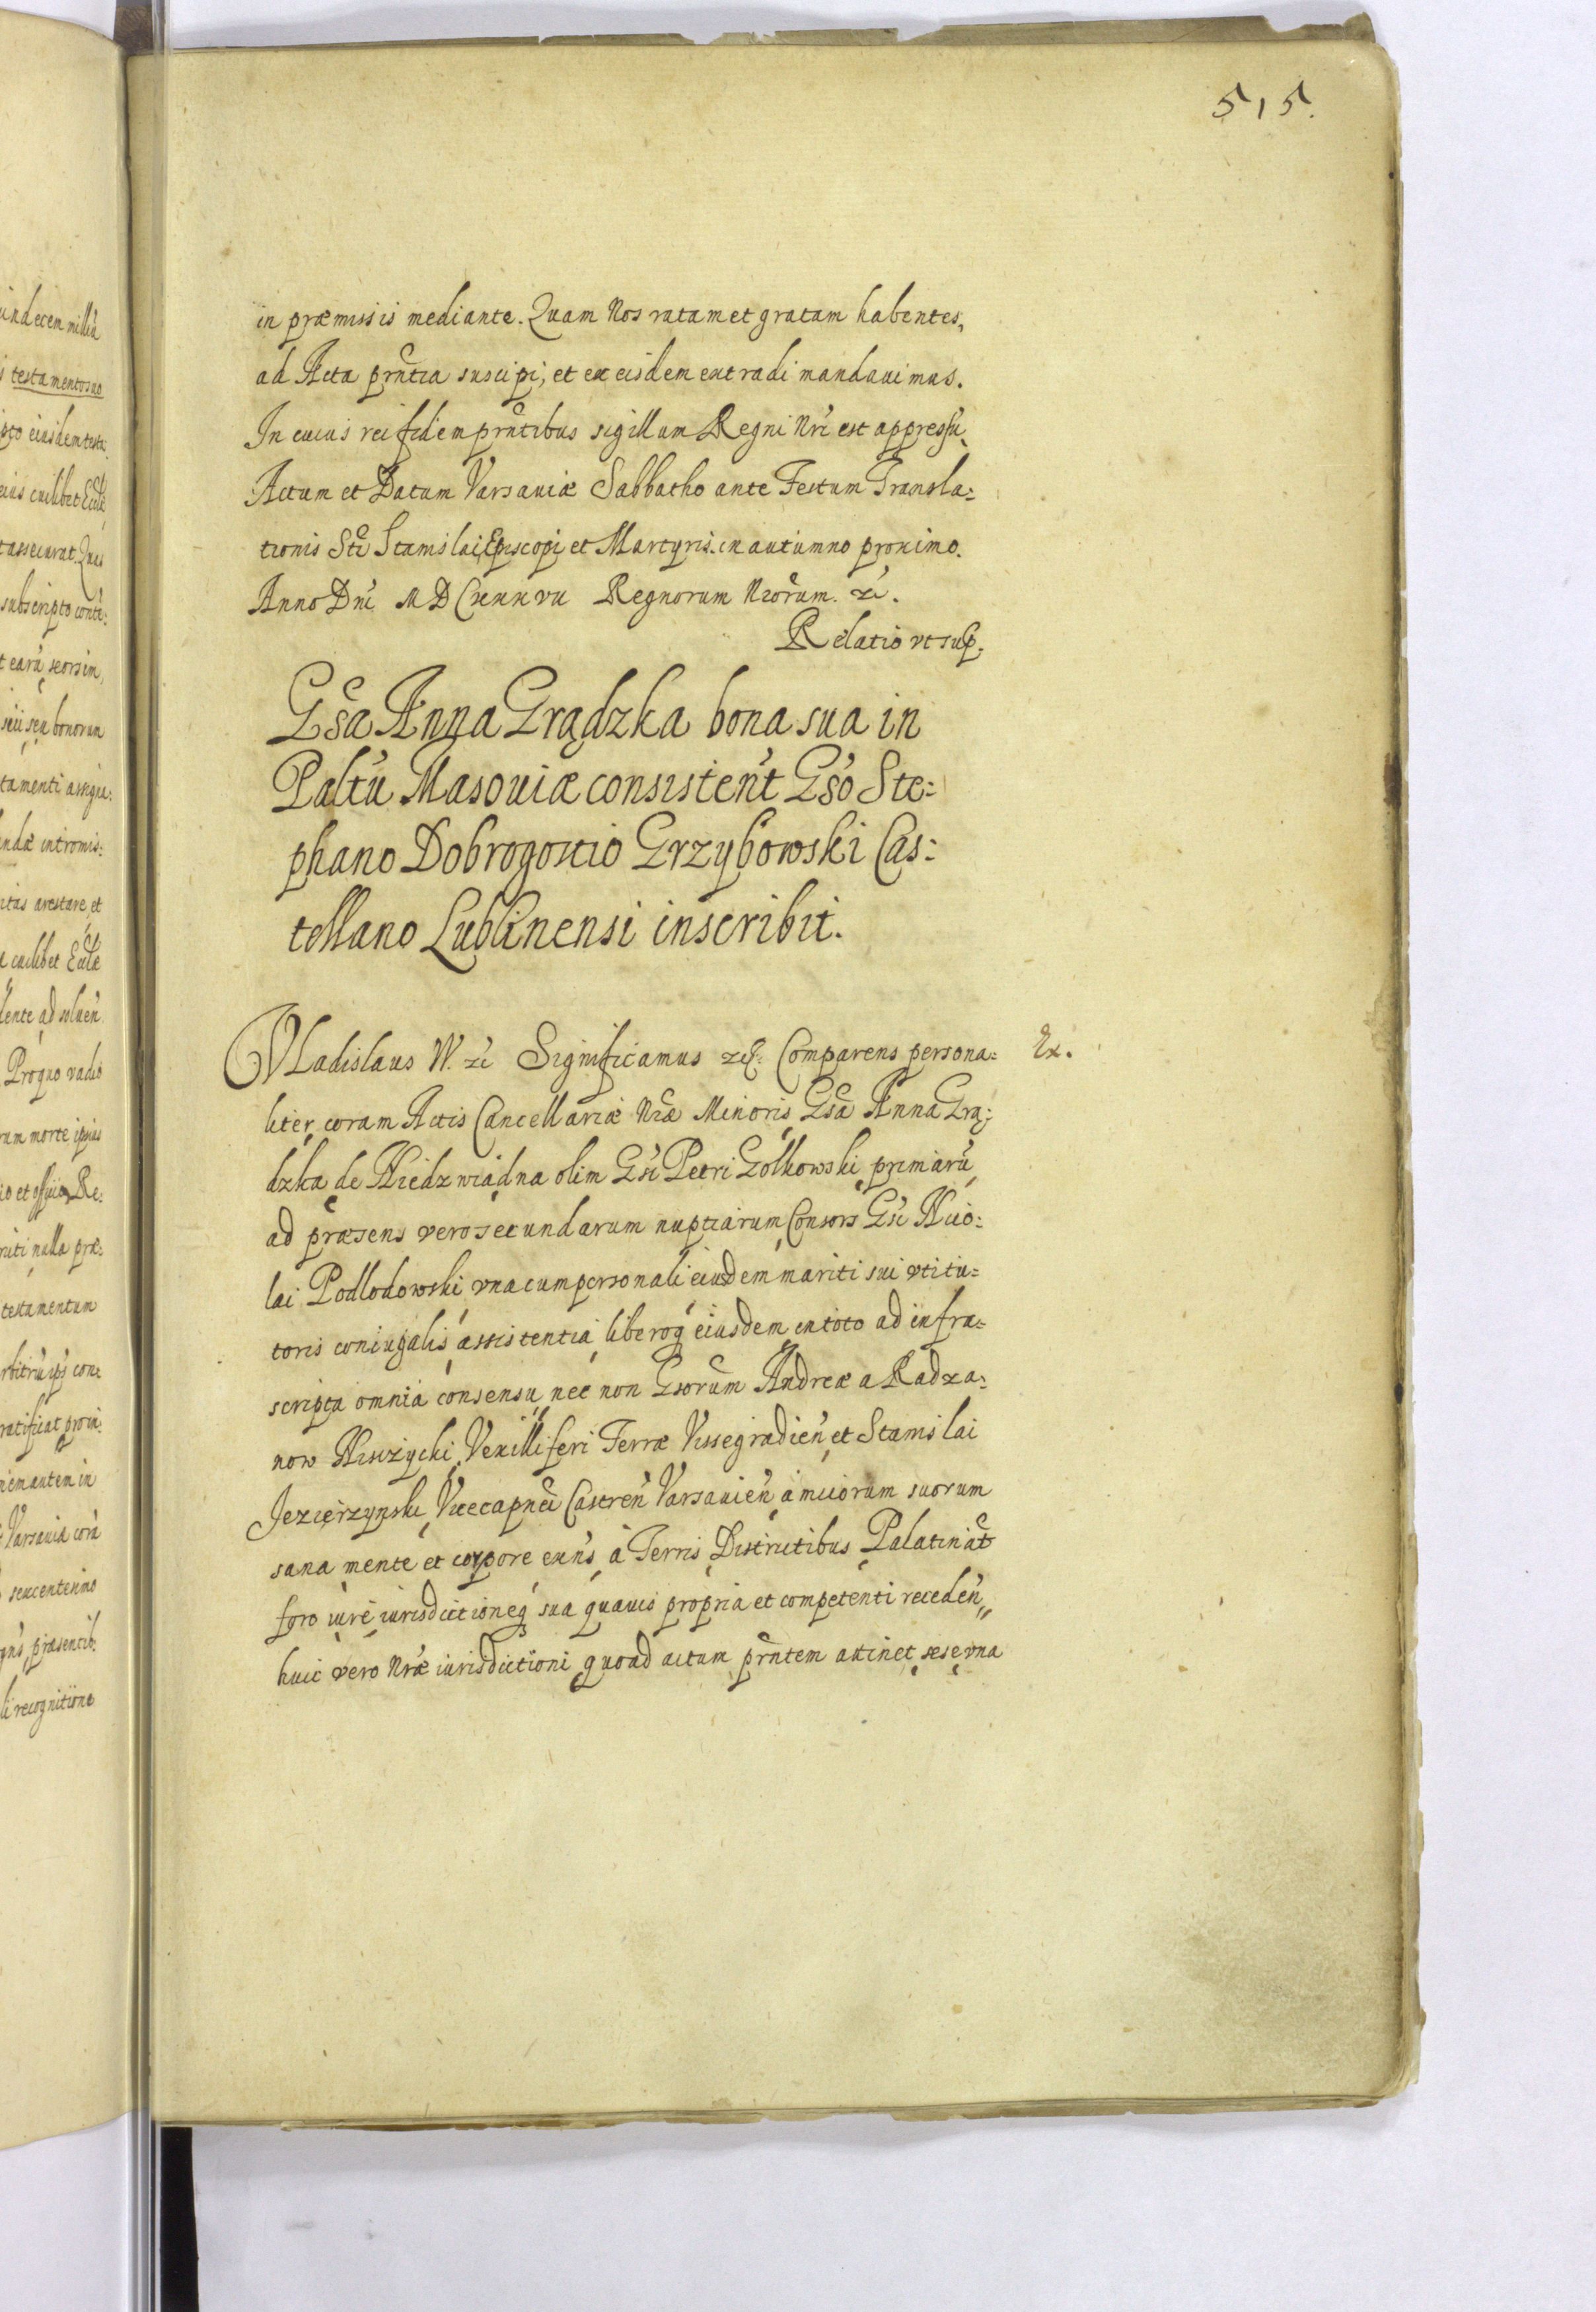 515.
in præmissis mediante. Quam Nos ratam et gratam habentes,
ad Acta prñtia suscipi, et ex eisdem extradi mandauimus.
In cuius rei fidem prñtibus sigillum Regni Nri est appressũ
Actum et Datum Varsauiæ Sabbatho ante Festum Transla=
tionis Sti Stanislai Episcopi et Martyris in autumno proximo.
Anno Dni MDCxxxvii Regnorum Nrorum. zc.
Relatio vt sup.
Gsa Anna Grądzka bona sua in
Paltu Masouiæ consisten̄t Gso Ste=
phano Dobrogostio Grzybowski Cas=
tellano Lublinensi inscribit.
Vladislaus IV. zc Significamus zc. Comparens persona=
Ex.
liter coram Actis Cancellariæ Nræ Minoris Gsa Anna Grą=
dzka de Niedzwiadna olim Gsi Petri Golkowski primarũ
ad præsens vero secundarum nuptiarum Consors Gsi Nico=
lai Podlodowski vna cum personali eiusdem mariti sui vti tu=
toris coniugalis assistentia liberoq eiusdem in toto ad infra=
scripta omnia consensu nec non Gsorum Andreæ a Radza=
now Niszczycki Vexilliferi Terræ Vissegradien̄ et Stanislai
Jezierzynski Vicecapnei Castren̄ Varsauien̄ amicorum suorum
sana mente et corpore exn̄s à Terris Districtibus Palatinat
foro iure iurisdictioneq sua quauis propria et competenti receden̄
huic vero Nræ iurisdictioni quoad actum prñtem attinet sese vna
testamento suo
cuilibet
subscripto
seorsim,
seu bonorum
intromis=
arestare, et
cuilibet
Pro quo vadio
morte ipsius
nulla præ=
testamentum
in
Varsauiæ corã
recognitione